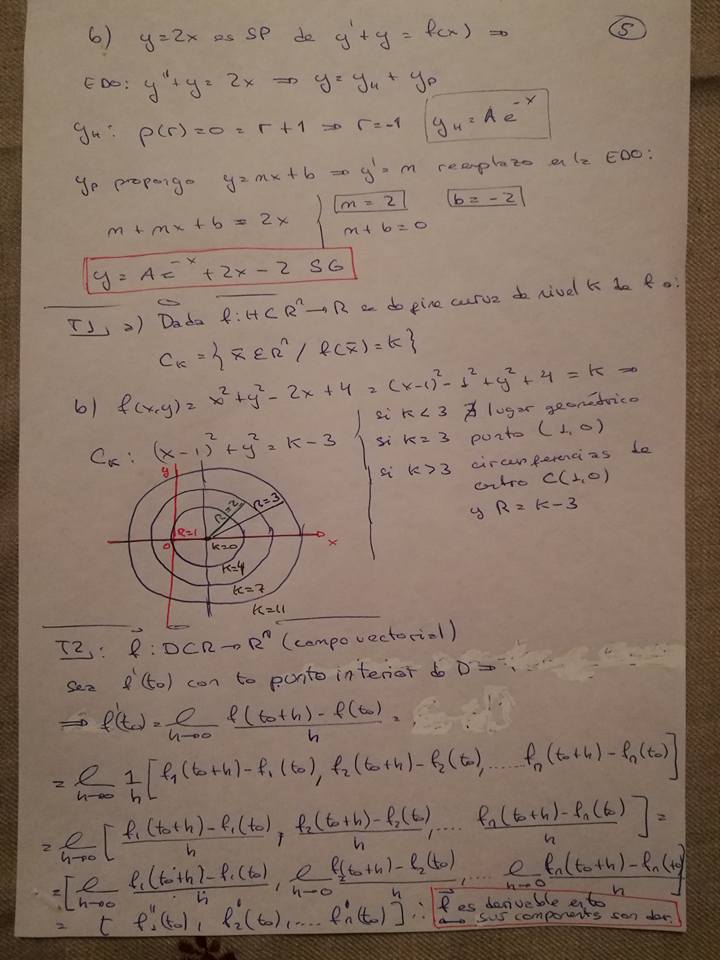 5
b) y=2x es SP de y'+y = f(x) ⇒
EDO: y''+y = 2x ⇒ y = y_H + y_P
y_H: p(r)=0 = r+1 ⇒ r=-1 y_H = A e^{-x}
y_P propongo y=mx+b ⇒ y'=m reemplazo en la EDO:
m+mx+b = 2x m=2 b=-2
m+b=0
y = A e^{-x} + 2x - 2 SG
T1, a) Dada f: H⊂R^n → R se define curva de nivel K de f a:
C_K = { x̄ ∈ R^n / f(x̄) = K }
b) f(x,y) = x²+y²-2x+4 = (x-1)²-1²+y²+4 = K ⇒
C_K: (x-1)²+y² = K-3
si K<3 ∄ lugar geométrico
si K=3 punto (1,0)
si K>3 circunferencias de
centro C(1,0)
y R = K-3
y
R=1
R=2
R=3
0
x
K=0
K=4
K=7
K=11
T2,: f: D⊂R → R^n (campo vectorial)
sea f'(to) con to punto interior de D ⇒
⇒ f'(to) = l_{h→0} f(to+h)-f(to)/h =
= l_{h→0} 1/h [f1(to+h)-f1(to), f2(to+h)-f2(to), ..... fn(to+h)-fn(to)]
= l_{h→0} [f1(to+h)-f1(to)/h, f2(to+h)-f2(to)/h, .... fn(to+h)-fn(to)/h] =
= [l_{h→0} f1(to+h)-f1(to)/h, l_{h→0} f2(to+h)-f2(to)/h, ... l_{h→0} fn(to+h)-fn(to)/h]
= [f1'(to), f2'(to), .... fn'(to)] ∴ f es derivable en to
sus components son der.